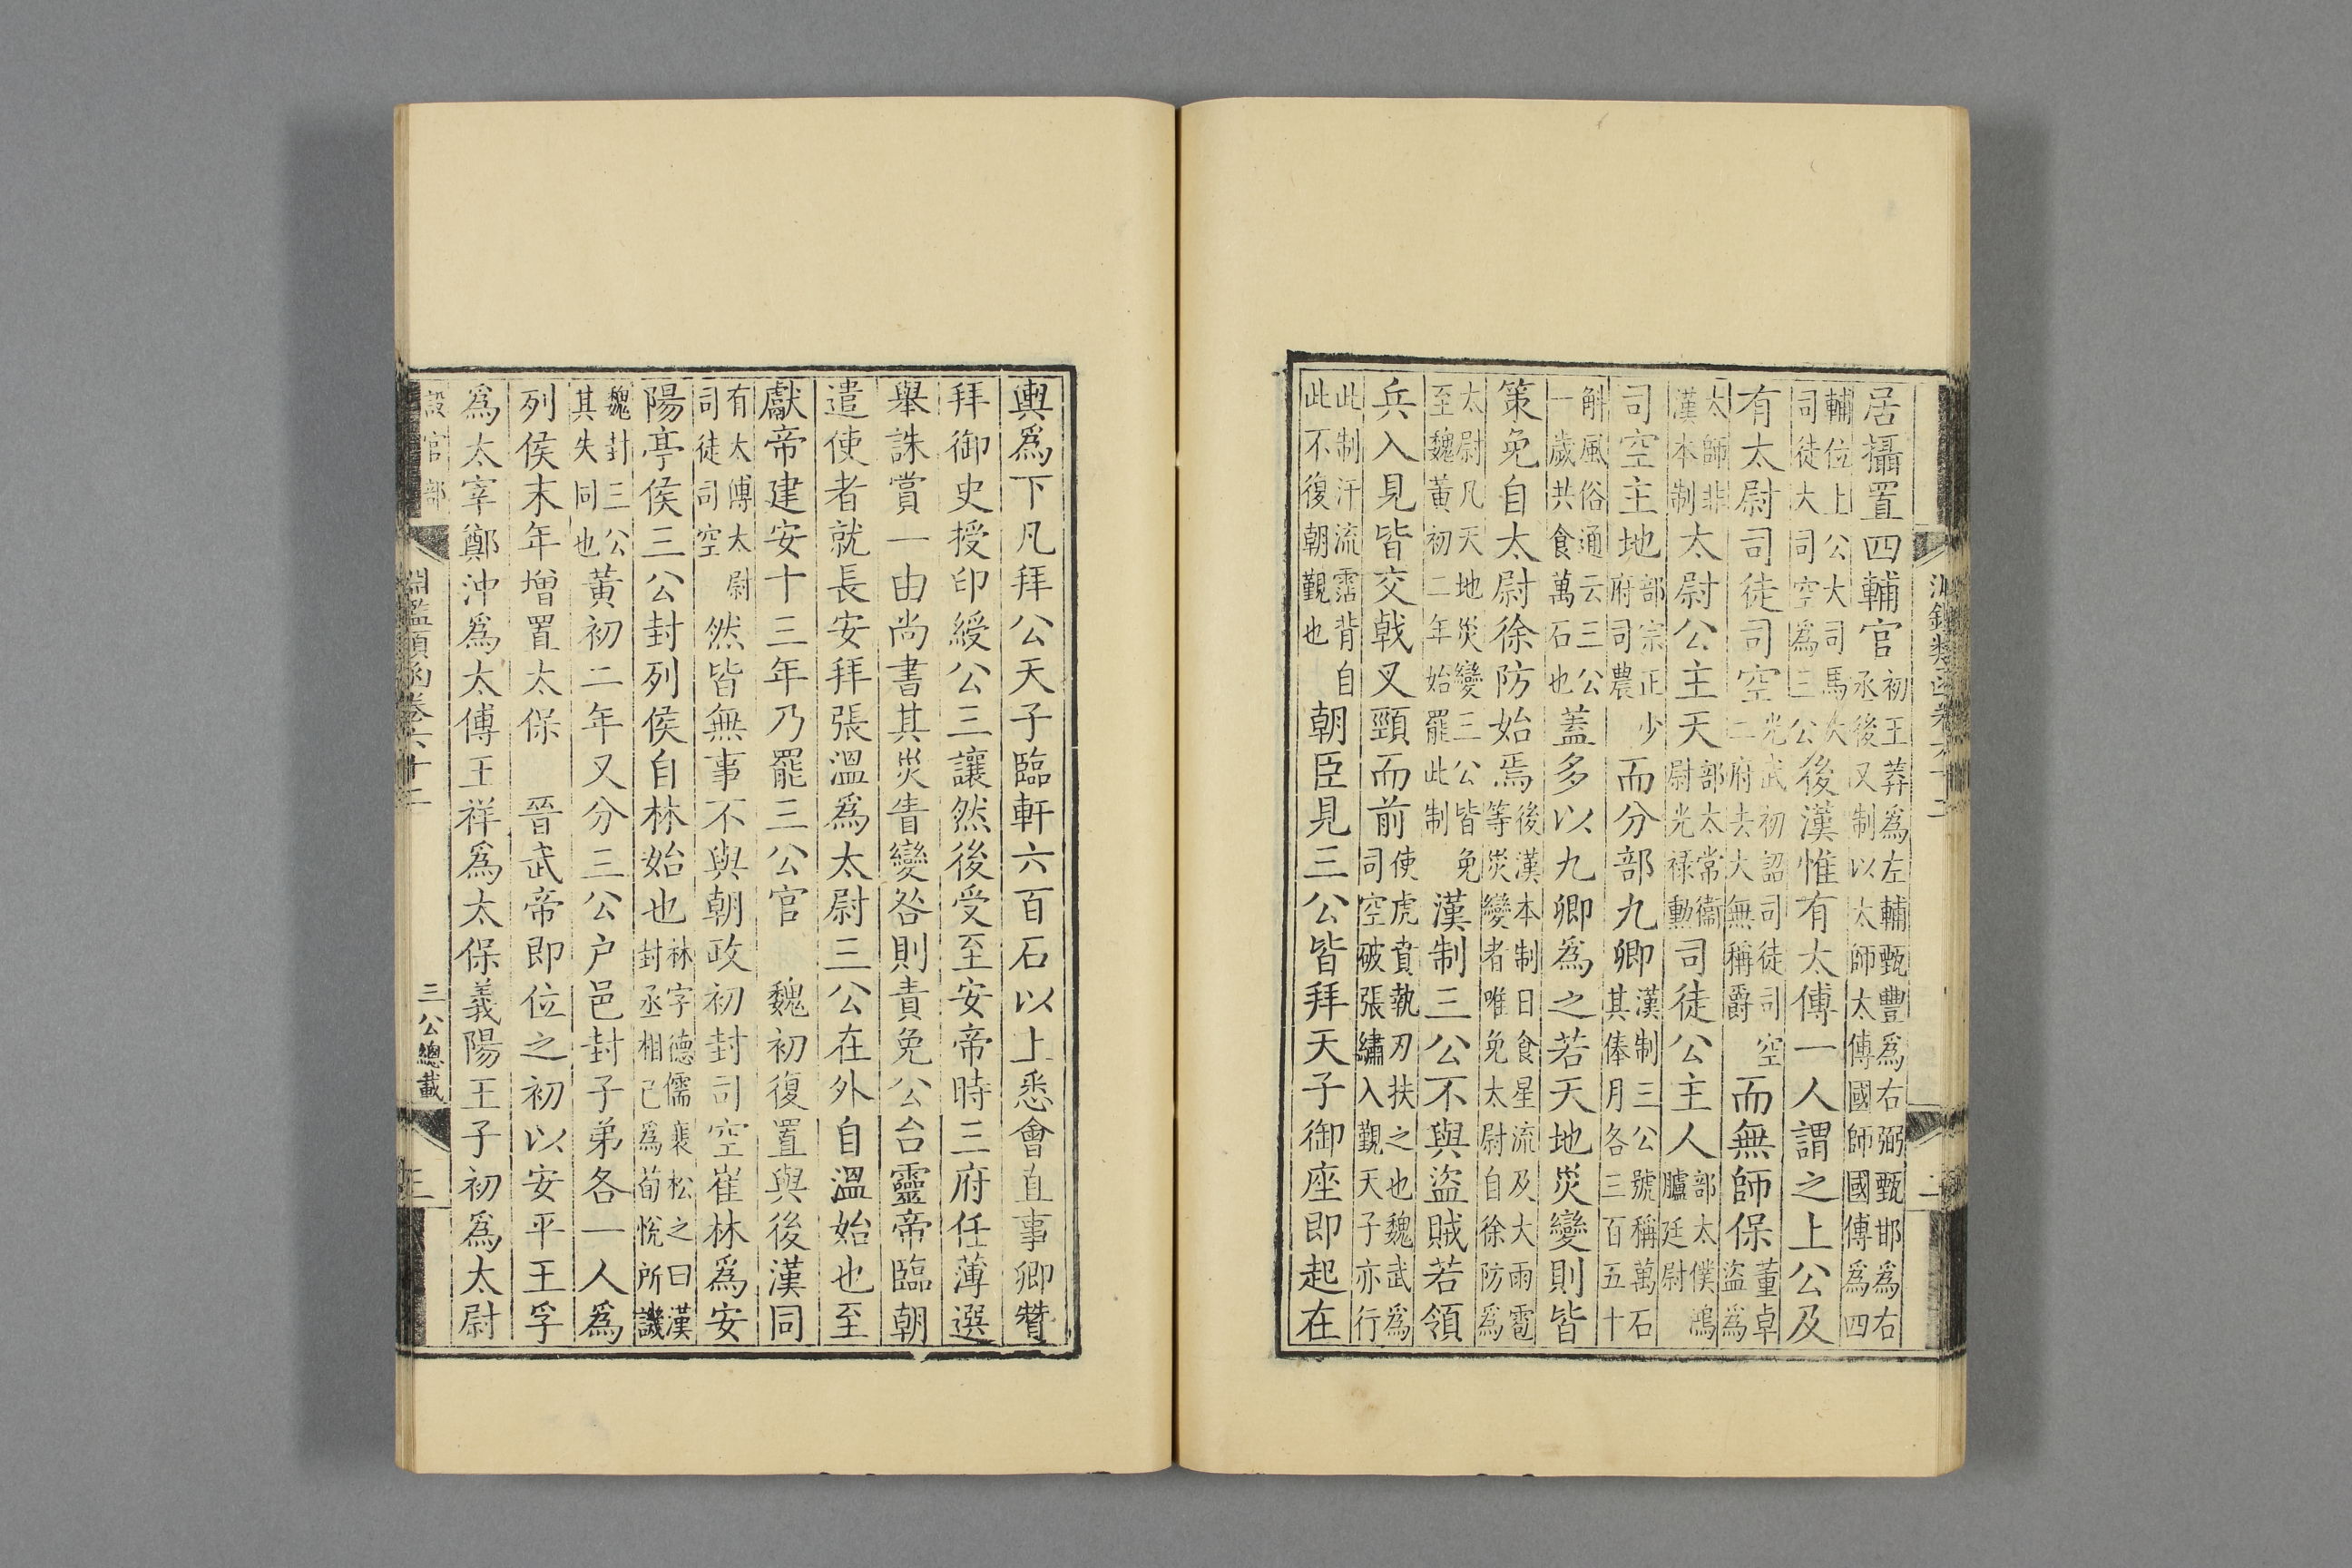 居攝置四輔官初王莽為左輔甄豐為右弼甄邯為右丞後又制以太師太傅國師國傅為四
輔位上公大司馬大司徒大司空為三公後漢惟有太傅一人謂之上公及
有太尉司徒司空光武初詔司徒司空二府去大無稱爵而無師保董卓盜為
太師非漢本制太尉公主天部太常衞尉光祿勳司徒公主人部太僕鴻臚廷尉
司空主地部宗正少府司農而分部九卿漢制三公號稱萬石其俸月各三百五十
斛風俗通云三公一歲共食萬石也蓋多以九卿為之若天地災變則皆
策免自太尉徐防始焉後漢本制日食星流及大雨雹等災變者唯免太尉自徐防為
太尉凡天地災變三公皆免至魏黃初二年始罷此制漢制三公不與盜賊若領
兵入見皆交戟叉頸而前使虎賁執刃扶之也魏武為司空破張繡入覲天子亦行
此制汗流霑背自此不復朝覲也朝臣見三公皆拜天子御座即起在
輿為下凡拜公天子臨軒六百石以上悉會直事卿贊
拜御史授印綬公三讓然後受至安帝時三府任薄選
舉誅賞一由尚書其災眚變咎則責免公台靈帝臨朝
遣使者就長安拜張溫為太尉三公在外自溫始也至
獻帝建安十三年乃罷三公官 魏初復置與後漢同
有太傅太尉司徒司空然皆無事不與朝政初封司空崔林為安
陽亭侯三公封列侯自林始也林字德儒裴松之曰漢封丞相已為荀悅所譏
魏封三公其失同也黃初二年又分三公户邑封子弟各一人為
列侯末年增置太保 晉武帝即位之初以安平王孚
為太宰鄭沖為太傅王祥為太保義陽王子初為太尉
設官部 淵鑑類函卷六十二 三公總載 三